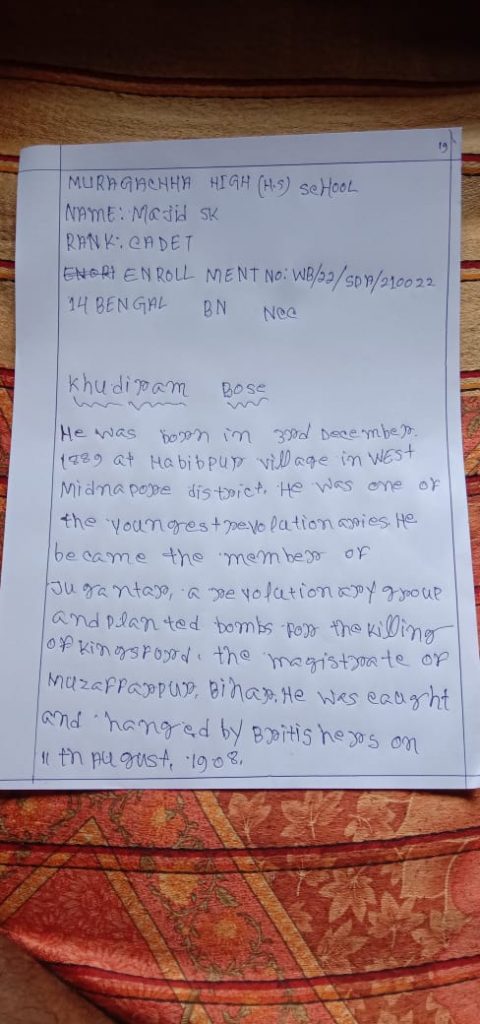 19
MURAGACHHA HIGH (H.S) SCHOOL
NAME: Majid SK
RANK: CADET
ENORI ENROLL MENT NO: WB/22/SDA/210022
14 BENGAL BN NCC
Khudiram Bose
He was born in 3rd December.
1889 at Habibpur village in WEST
Midnapore district. He was one of
the youngest revolutionaries. He
became the member of
Jugantar, a revolutionary group
and planted bombs for the killing
of Kingsford. the magistrate of
Muzaffarpur, Bihar. He was caught
and hanged by Britishers on
11 th August, 1908.